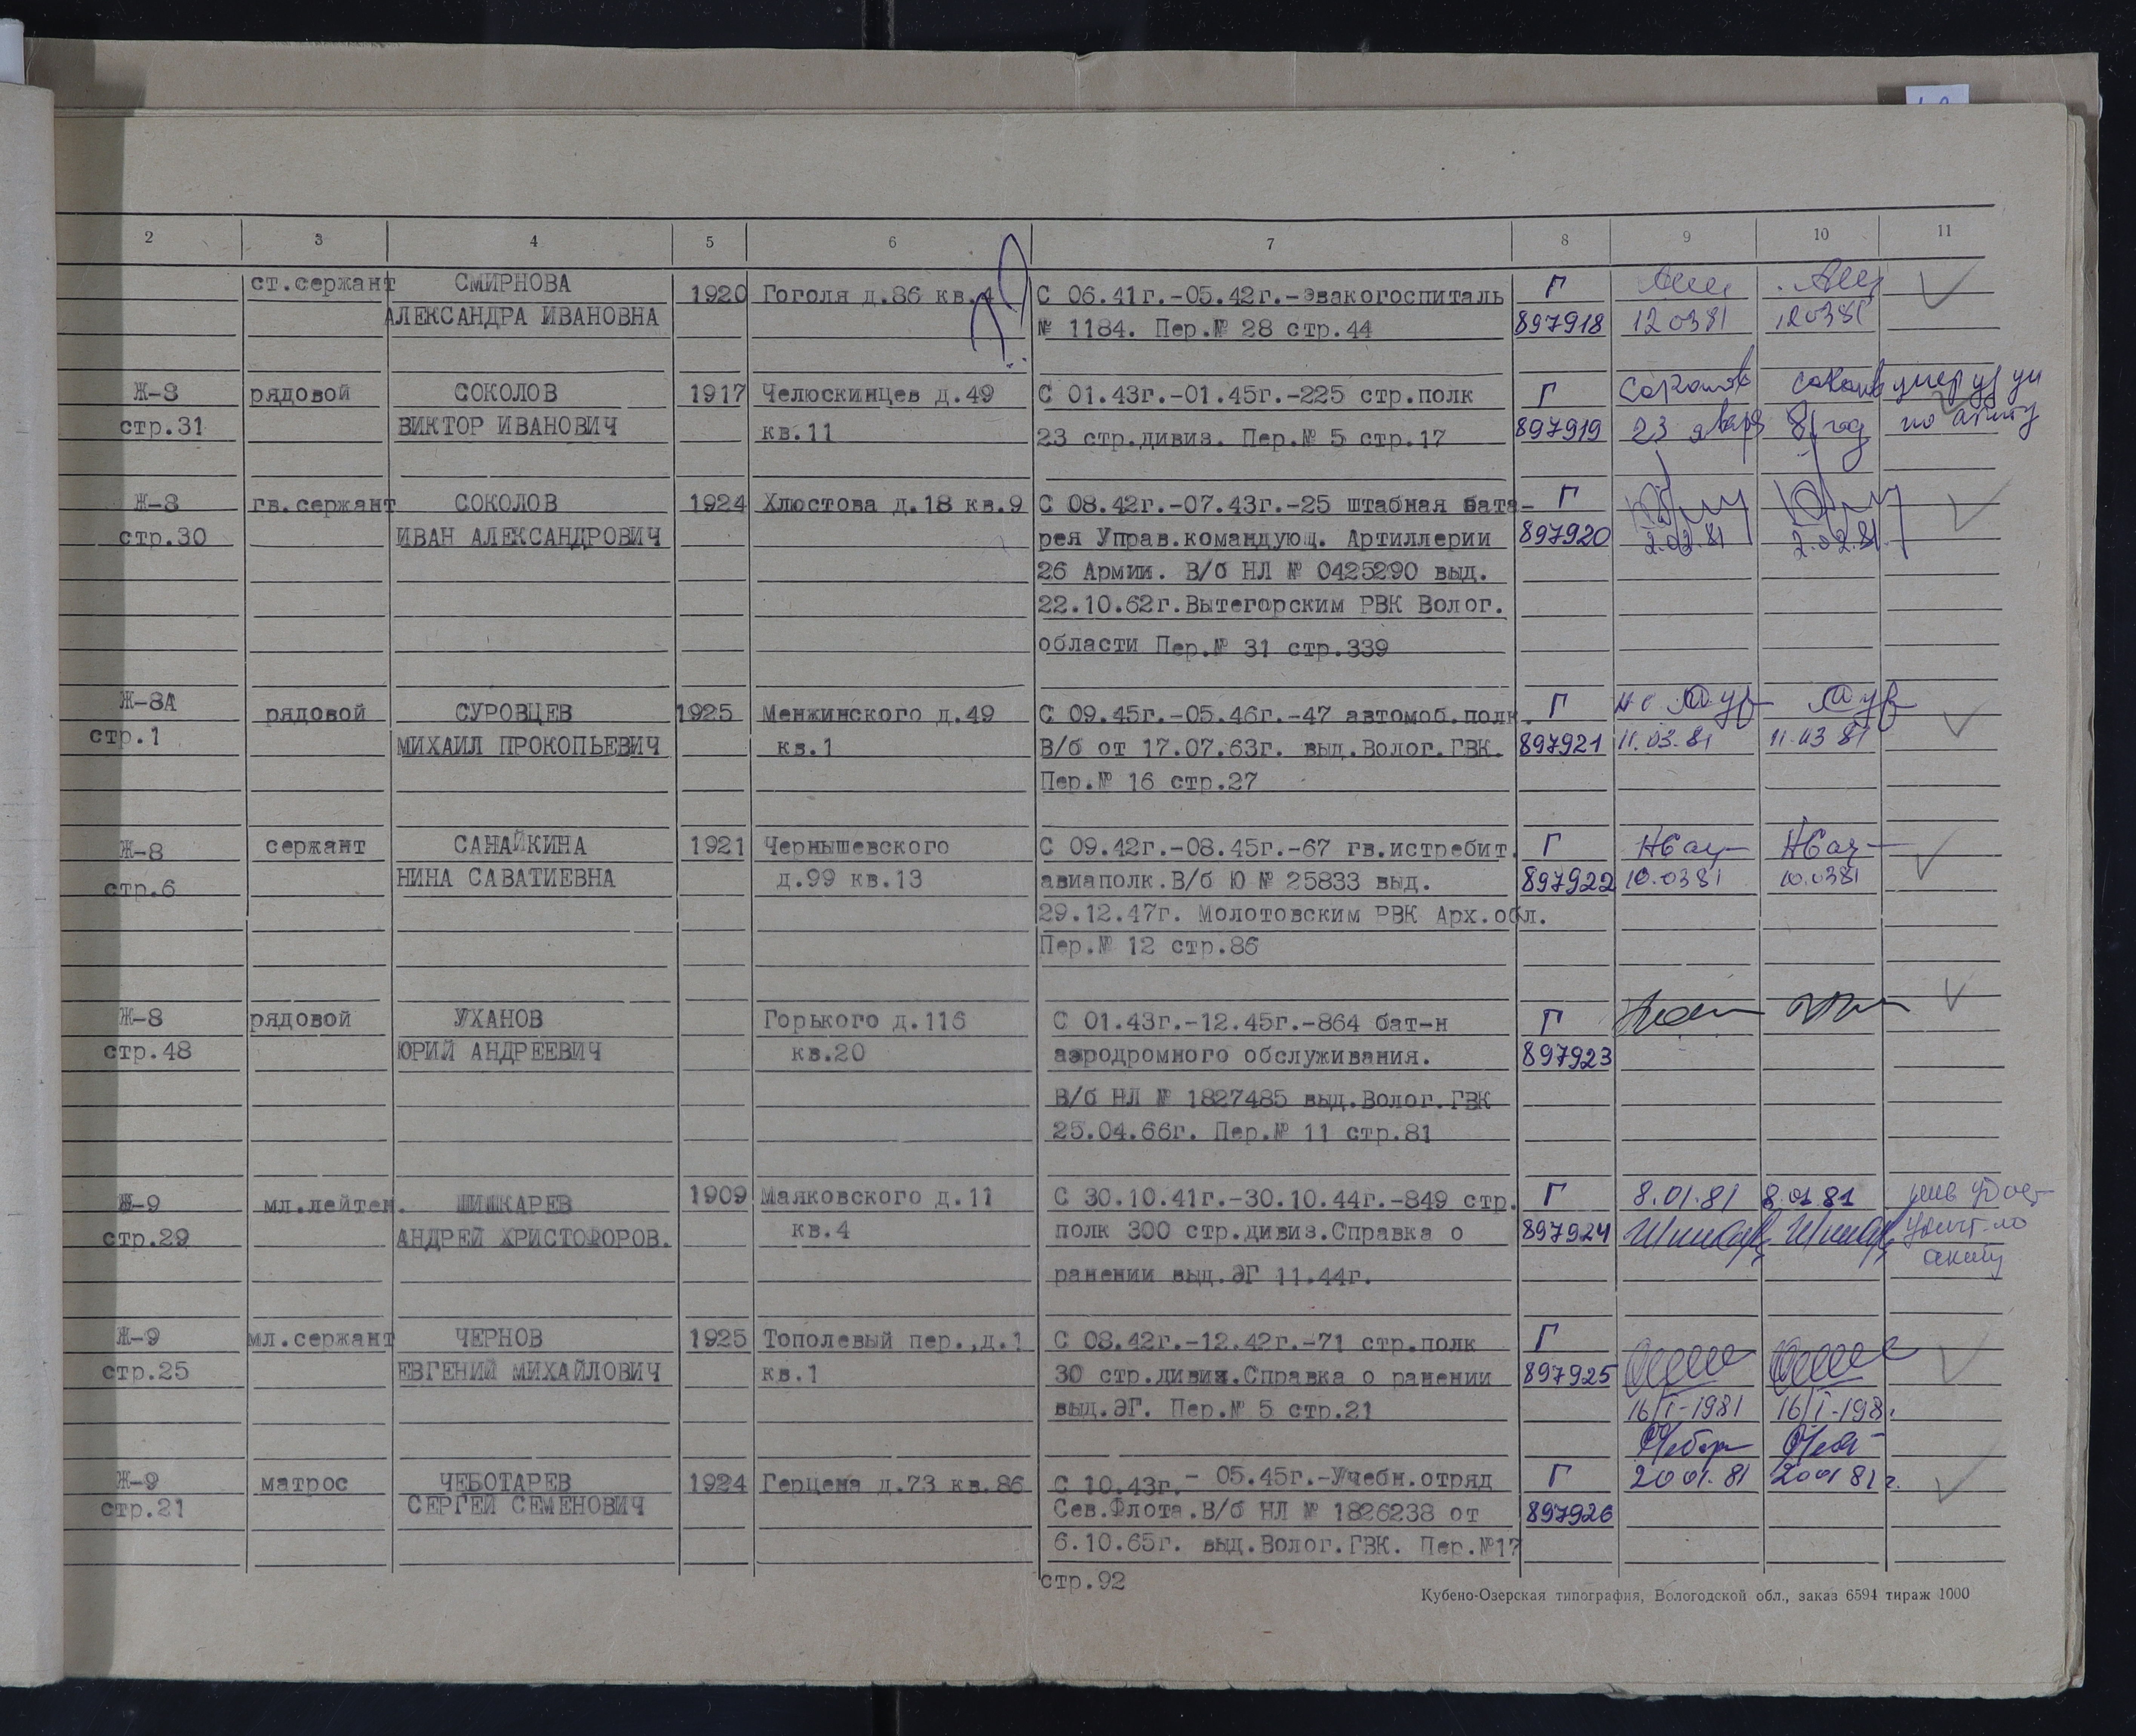 2 3 4 5 6 7 8 9 10 11
ст.сержант СМИРНОВА 1920 Гоголя д.86 кв.4 С 06.41г.-05.42г.-Эвакогоспиталь Г
АЛЕКСАНДРА ИВАНОВНА № 1184. Пер.№ 28 стр.44 897918 120381 120381
Ж-8 рядовой СОКОЛОВ 1917 Челюскинцев д.49 С 01.43г.-01.45г.-225 стр.полк Г Соколов умер
стр.31 ВИКТОР ИВАНОВИЧ кв.11 23 стр.дивиз. Пер.№ 5 стр.17 897919 23 января 81 год по акту
Ж-8 гв.сержант СОКОЛОВ 1924 Хлюстова д.18 кв.9 С 08.42г.-07.43г.-25 штабная бата- Г
стр.30 ИВАН АЛЕКСАНДРОВИЧ рея Управ.командующ. Артиллерии 897920 2.02.81 2.02.81.
26 Армии. В/б НЛ № 0425290 выд.
22.10.62г.Вытегорским РВК Волог.
области Пер.№ 31 стр.339
Ж-8А рядовой СУРОВЦЕВ 1925 Менжинского д.49 С 09.45г.-05.46г.-47 автомоб.полк. Г
стр.1 МИХАИЛ ПРОКОПЬЕВИЧ кв.1 В/б от 17.07.63г. выд.Волог.ГВК. 897921 11.03.81 11.03 81
Пер.№ 16 стр.27
Ж-8 сержант САНАЙКИНА 1921 Чернышевского С 09.42г.-08.45г.-67 гв.истребит. Г
стр.6 НИНА САВАТИЕВНА д.99 кв.13 авиаполк.В/б Ю № 25833 выд. 897922 10.0381 10.0381
29.12.47г. Молотовским РВК Арх.обл.
Пер.№ 12 стр.86
Ж-8 рядовой УХАНОВ Горького д.116 С 01.43г.-12.45г.-864 бат-н Г
стр.48 ЮРИЙ АНДРЕЕВИЧ кв.20 аэродромного обслуживания. 897923
В/б НЛ № 1827485 выд.Волог.ГВК
25.04.66г. Пер.№ 11 стр.81
Ж-9 мл.лейтен. ШИШКАРЕВ 1909 Маяковского д.11 С 30.10.41г.-30.10.44г.-849 стр. Г 8.01.81 8.01.81
стр.29 АНДРЕЙ ХРИСТОФОРОВ. кв.4 полк 300 стр.дивиз.Справка о 897924 по
ранении выд.ЭГ 11.44г. акту
Ж-9 мл.сержант ЧЕРНОВ 1925 Тополевый пер.,д.1 С 08.42г.-12.42г.-71 стр.полк Г
стр.25 ЕВГЕНИЙ МИХАЙЛОВИЧ кв.1 30 стр.дивиз.Справка о ранении 897925
выд.ЭГ. Пер.№ 5 стр.21 16/I-1981 16/I-198
Ж-9 матрос ЧЕБОТАРЕВ 1924 Герцена д.73 кв.86 С 10.43г.- 05.45г.-Учебн.отряд Г 2001.81 2001 81г.
стр.21 СЕРГЕЙ СЕМЕНОВИЧ Сев.Флота.В/б НЛ № 1826238 от 897926
6.10.65г. выд.Волог.ГВК. Пер.№17
стр.92
Кубено-Озерская типография, Вологодской обл., заказ 6594 тираж 1000